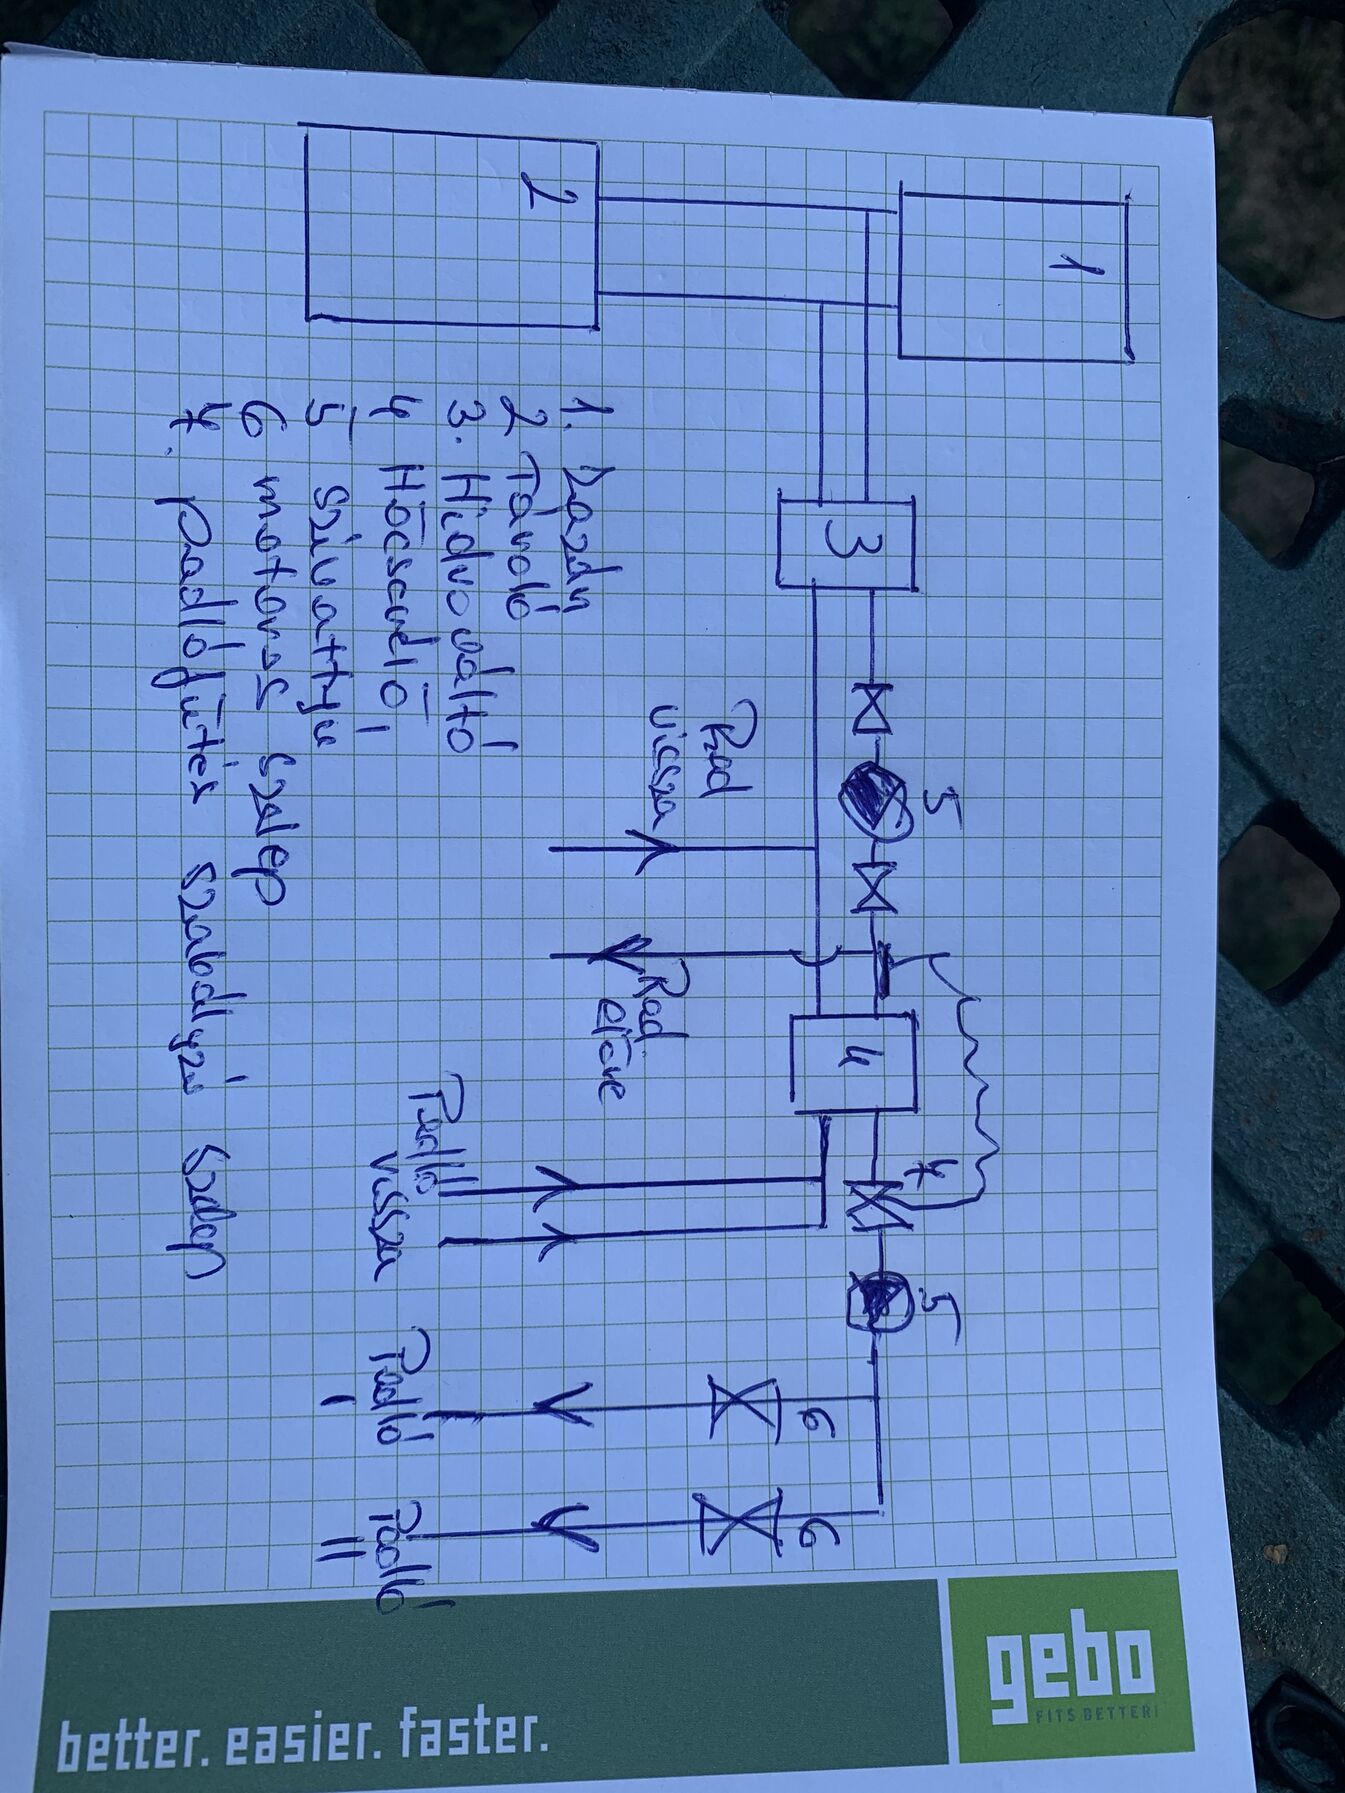 1
2
3
5
4
7
5
6
6
Rad
vissza
Rad
előre
Padló
vissza
Padló
I
Padló
II
1. Kazán
2 Tároló
3. Hidvo váltó
4 Hőcserélő
5 szivattyú
6 motoros szelep
7. padlófűtés szabályzó szelep
gebo
FITS BETTER!
better. easier. faster.